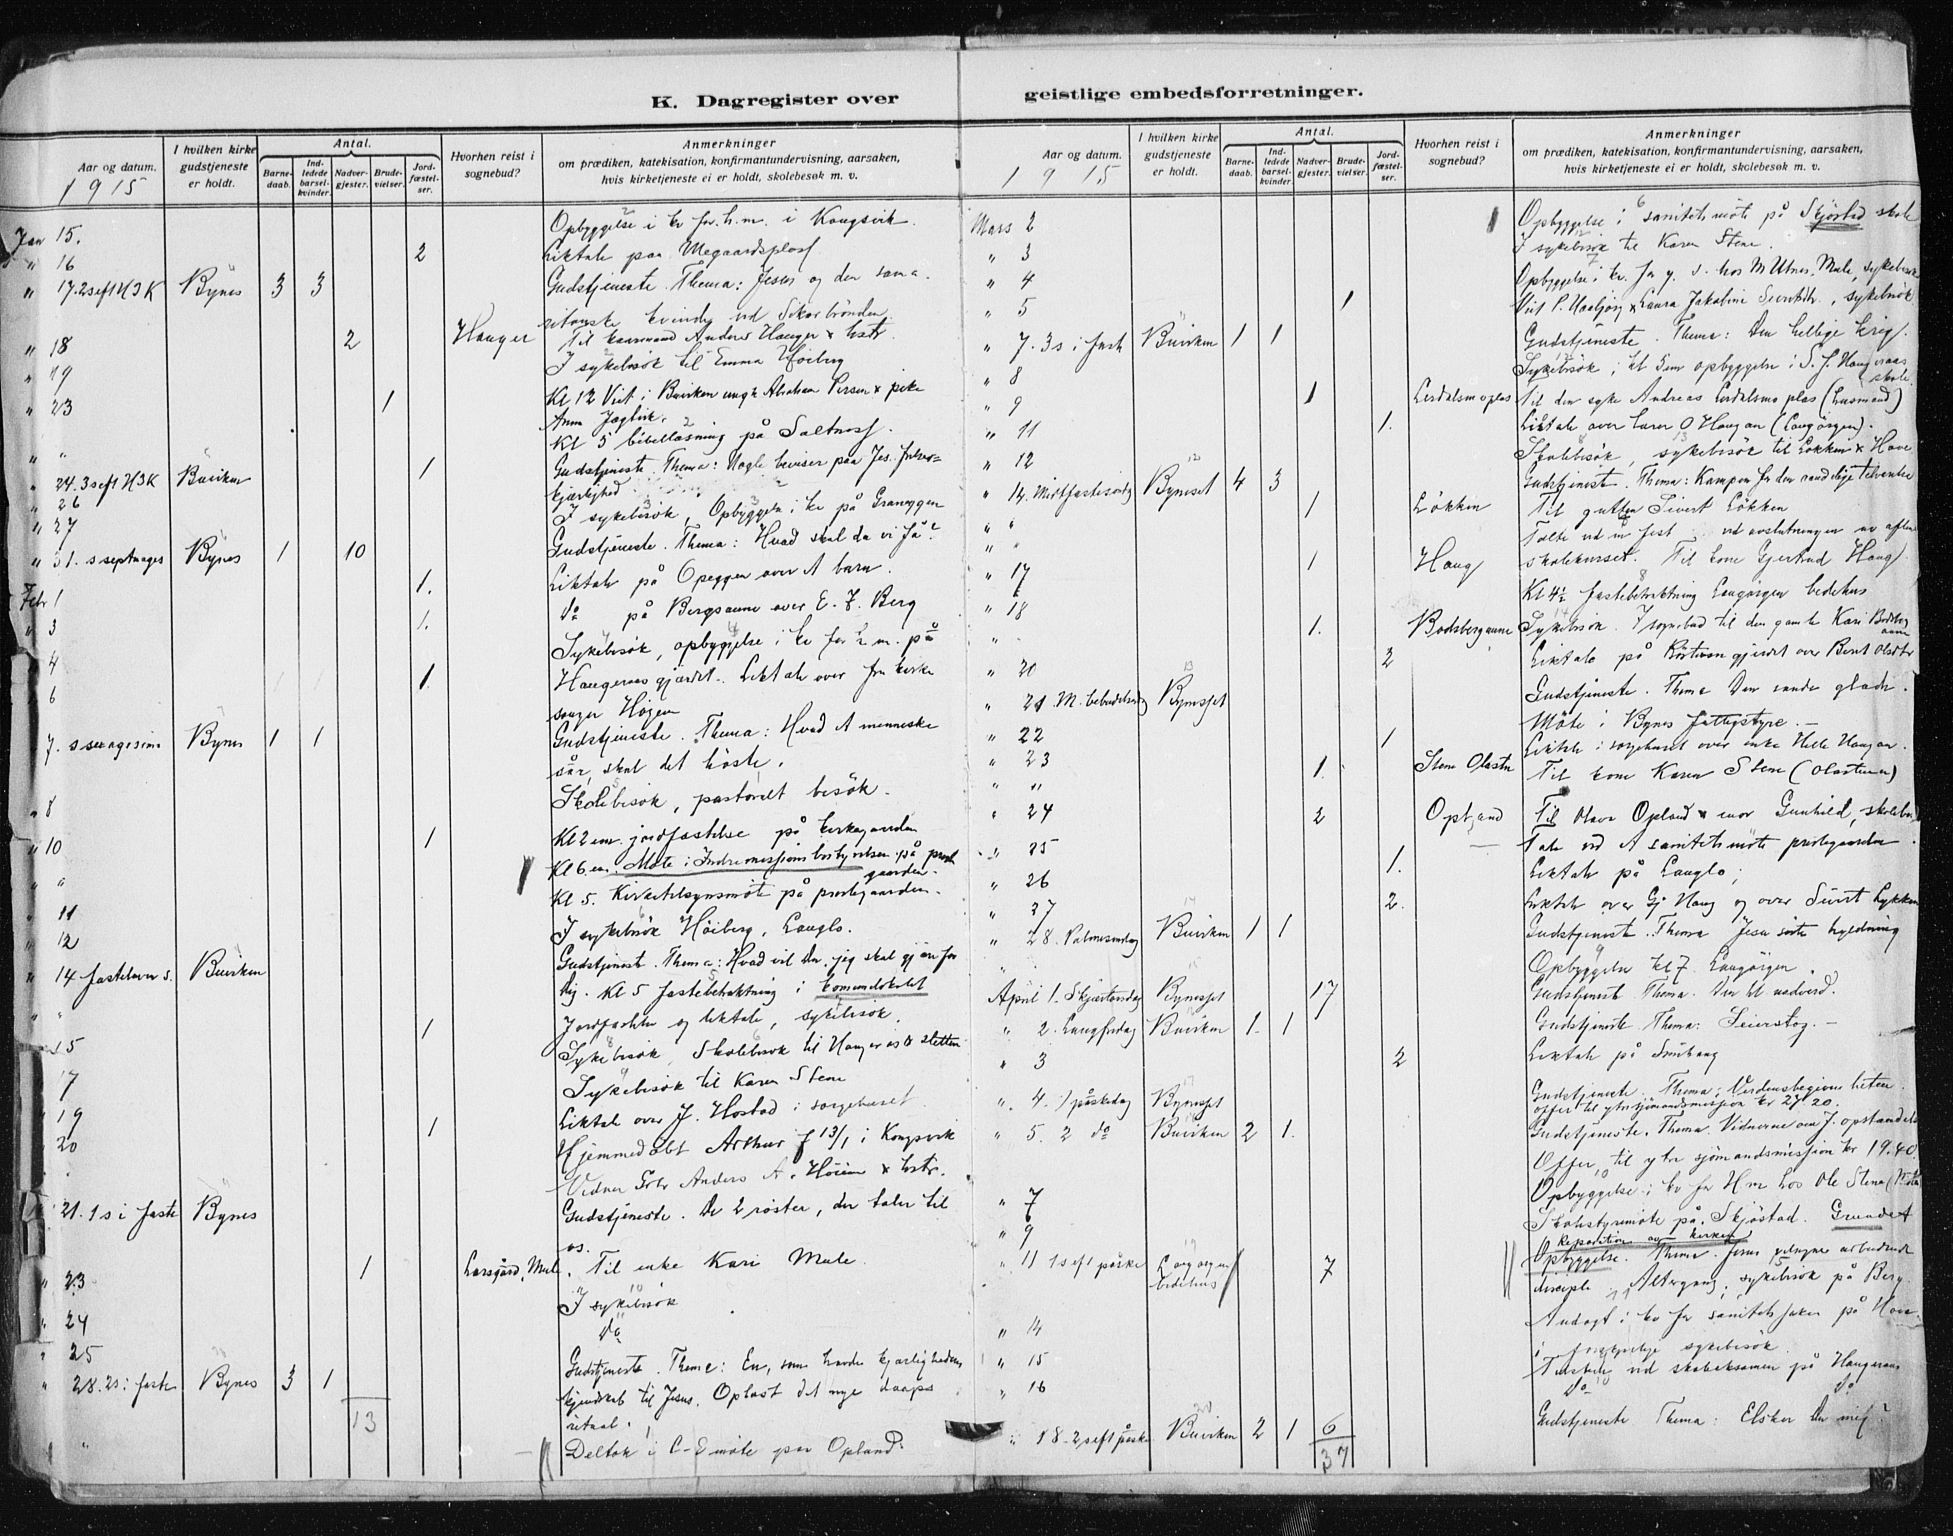 K. Dagregister over
geistlige embedsforretninger.
Aar og datum.
1915
I hvilken kirke gudstjeneste er holdt.
Antal.
Barnedaab.
Indledede barselkvinder.
Nadvergjester.
Brudevielser.
Jordfæstelser.
Hvorhen reist i sognebud?
Anmerkninger
om prædiken, katekisation, konfirmantundervisning, aarsaken,
hvis kirketjeneste ei er holdt, skolebesøk m. v.
Jan 15. Opbyggelse i kv for. h.m. i Kongsvik.
" 16 2 Liktale paa Megaardsplass
" 17. 2 s eft H3K Bynes 3 3 Gudstjeneste. Thema: Jesus og den sama-
ritanske kvinde ved Sikarbrønden
" 18 2 Hanger Til kaarmand Anders Hanger x hstr.
" 19 I sykebesök til Emma Höiberg
" 23 1 Kl 12 Viet i Buviken ungk Abraham Persen x pike
Anna Saghvik.
" " Kl 5 bibellæsning på Saltnes.
" 24. 3 s eft H3K Buviken 1 Gudstjeneste. Thema: Nogle beviser paa Jes. frelser=
kjærlighed
" 26 I sykebesök, Opbyggelse i kv på Graneggen
" 27
" 31. s septuages Bynes 1 10 Gudstjeneste. Thema: Hvad skal da vi få?
Febr 1 1. Liktale på Opeggen over A barn.
" 3 1. do på Bergsaune over E. J. Berg
" 4 Sykebesök, opbyggelse i kv for h.m. på
" 6 1. Haugeraasgjærdet. Liktale over fru kirke
sanger Högen
" 7. s sexagesima Bynes 1 1 Gudstjeneste. Thema: Hvad et menneske
sår, skal det høste.
" 8 Skolebesøk, pastorelt besök.
" 10 1 Kl 2 em. jordfæstelse på kirkegaarden
" " Kl 6 em. Møte i Indremissionsbestyrelsen på prest
gaarden.
" 11 Kl 5. Kirketilsynsmöte på prestegaarden.
" 12 I sykebesök Höiberg, Langlo.
" 14 fastelavns s. Buviken Gudstjeneste. Thema: Hvad vil Du, jeg skal gjøre for
dig. Kl 5 fastebetraktning i komunelokalet
" 15 1 Jordfæstelse og liktale, sykebesök.
" 17 Sykebesök, Skolebesök til Haugeraas & Sletten
" 19 Sykebesök til Karen Stene
" 20 1 Liktale over J. Hostad i sørgehuset
Hjemmedöbt Arthur f 13/1 i Kongsvik
Vidner Gbr Anders A. Höiem x hstr.
" 21. 1 s i faste Bynes Gudstjeneste. De 2 røster, der taler til
os.
" 23 1 Larsgård, Mule. Til enke Kari Mule.
" 24 I sykebesök
" 25 do
" 28. 2 s i faste Bynes 3 1 Gudstjeneste. Thema: En, som havde kjærlighedens
kjendskab til Jesus. Oplæst det nye daaps
13 ritual.
" Deltok i C-E möte paa Opland.
Aar og datum.
1915
I hvilken kirke gudstjeneste er holdt.
Antal.
Barnedaab.
Indledede barselkvinder.
Nadvergjester.
Brudevielser.
Jordfæstelser.
Hvorhen reist i sognebud?
Anmerkninger
om prædiken, katekisation, konfirmantundervisning, aarsaken,
hvis kirketjeneste ei er holdt, skolebesøk m. v.
Mars 2 Opbyggelse i sanitetsmöte på Skjöstad skole
" 3 I sykebesök til Karen Stene.
" 4 Opbyggelse i kv. for y. s. hos M Utnes, Mule, sykebesök
" 5 1 Viet P. Haaljörg x Laura Jakobine Sivertsdtr., sykebesök
" 7. 3 s i faste Buviken 1 1 Gudstjeneste. Thema: Den hellige krig.
" 8 Sykebesök, kl 5 em opbyggelse i S. f. Haugeraas
skole.
" 9 1 Lerdalsmoplas Til den syke Andreas Lerdalsmoplas (husmand)
" 11 1. Liktale over lærer O Haugan (Langörgen).
" 12 Skolebesök, sykebesök til Løkken x Hove
" 14. Midtfastesöndag Byneset 4 3 Gudstjeneste. Thema: Kampen for den aandelige tilværelse
" " 1 Lökken Til gutten Sivert Lökken
" " Talte ved en fest ved avslutningen av aften
" 17 1 Haug skolekurset. Til kone Gjertrud Haug
" 18 Kl 4½ fastebetraktning Langörgen bedehus
" 1. Bodsbergaune Sykebesök. I sognebud til den gamle Kari Bodsberg
aune
" 20 2 Liktale på Röstwangjerdet over Berit Olsdtr
" 21. M. bebudelsesdag Byneset Gudstjeneste. Thema Den sande glæde.
" 22 Möte i Bynes fattigstyre. -
" 23 1 Liktale i sörgehuset over enke Helle Haugan.
" " 1. Stene Olastu Til kone Karen Stene (Olastuen)
" 24 2 Opland Til Olava Opland x mor Gunhild, skolebesök
" 25 Tale ved et sanitetsmöte prestegaarden
" 26 1. Liktale på Langlo;
" 27 2. Liktale over Gj Haug og over Sivert Lykken
" 28. Palmesøndag Buviken 1 1 Gudstjeneste. Thema Jesu sidste hyldning
" Opbyggelse kl 7. Langörgen.
April 1. Skjærtorsdag Byneset 17 Gudstjeneste Thema. Den hl nadverd.
" 2. Langfredag Buviken 1. 1 Gudstjeneste Thema: Seierstog. -
" 3 2 Liktale på Smibang
" 4. 1) påskedag Byneset Gudstjeneste. Thema: Verdensbegivenheten.
offer til ytre sjömandsmission kr 27.20.
" 5. 2 do Buviken 2 1. Gudstjeneste. Thema Vidnerne om J. opstandelse
Offer, til ytre sjømandsmission kr 19.40.
" 7 Opbyggelse i kv for Hm hos Ole Stene
" 9 Skolestyremöte på Skjöstad. Grundet
Reparation av kirken
" 11 1 s eft påske Langörgen 7 Opbyggelse. Thema. Jesus
bedehus disciple. Altergang; sykebesök på Berg
" 14 Andagt i kv for sanitetssaken på Hove
sykebesök.
" 15 Tilstede ved skoleeksamen på Haugeraas
" 16 do do
" 18. 2 s eft påske Buviken 2 1 6 Gudstjeneste Thema: Elsker Du mig?
37